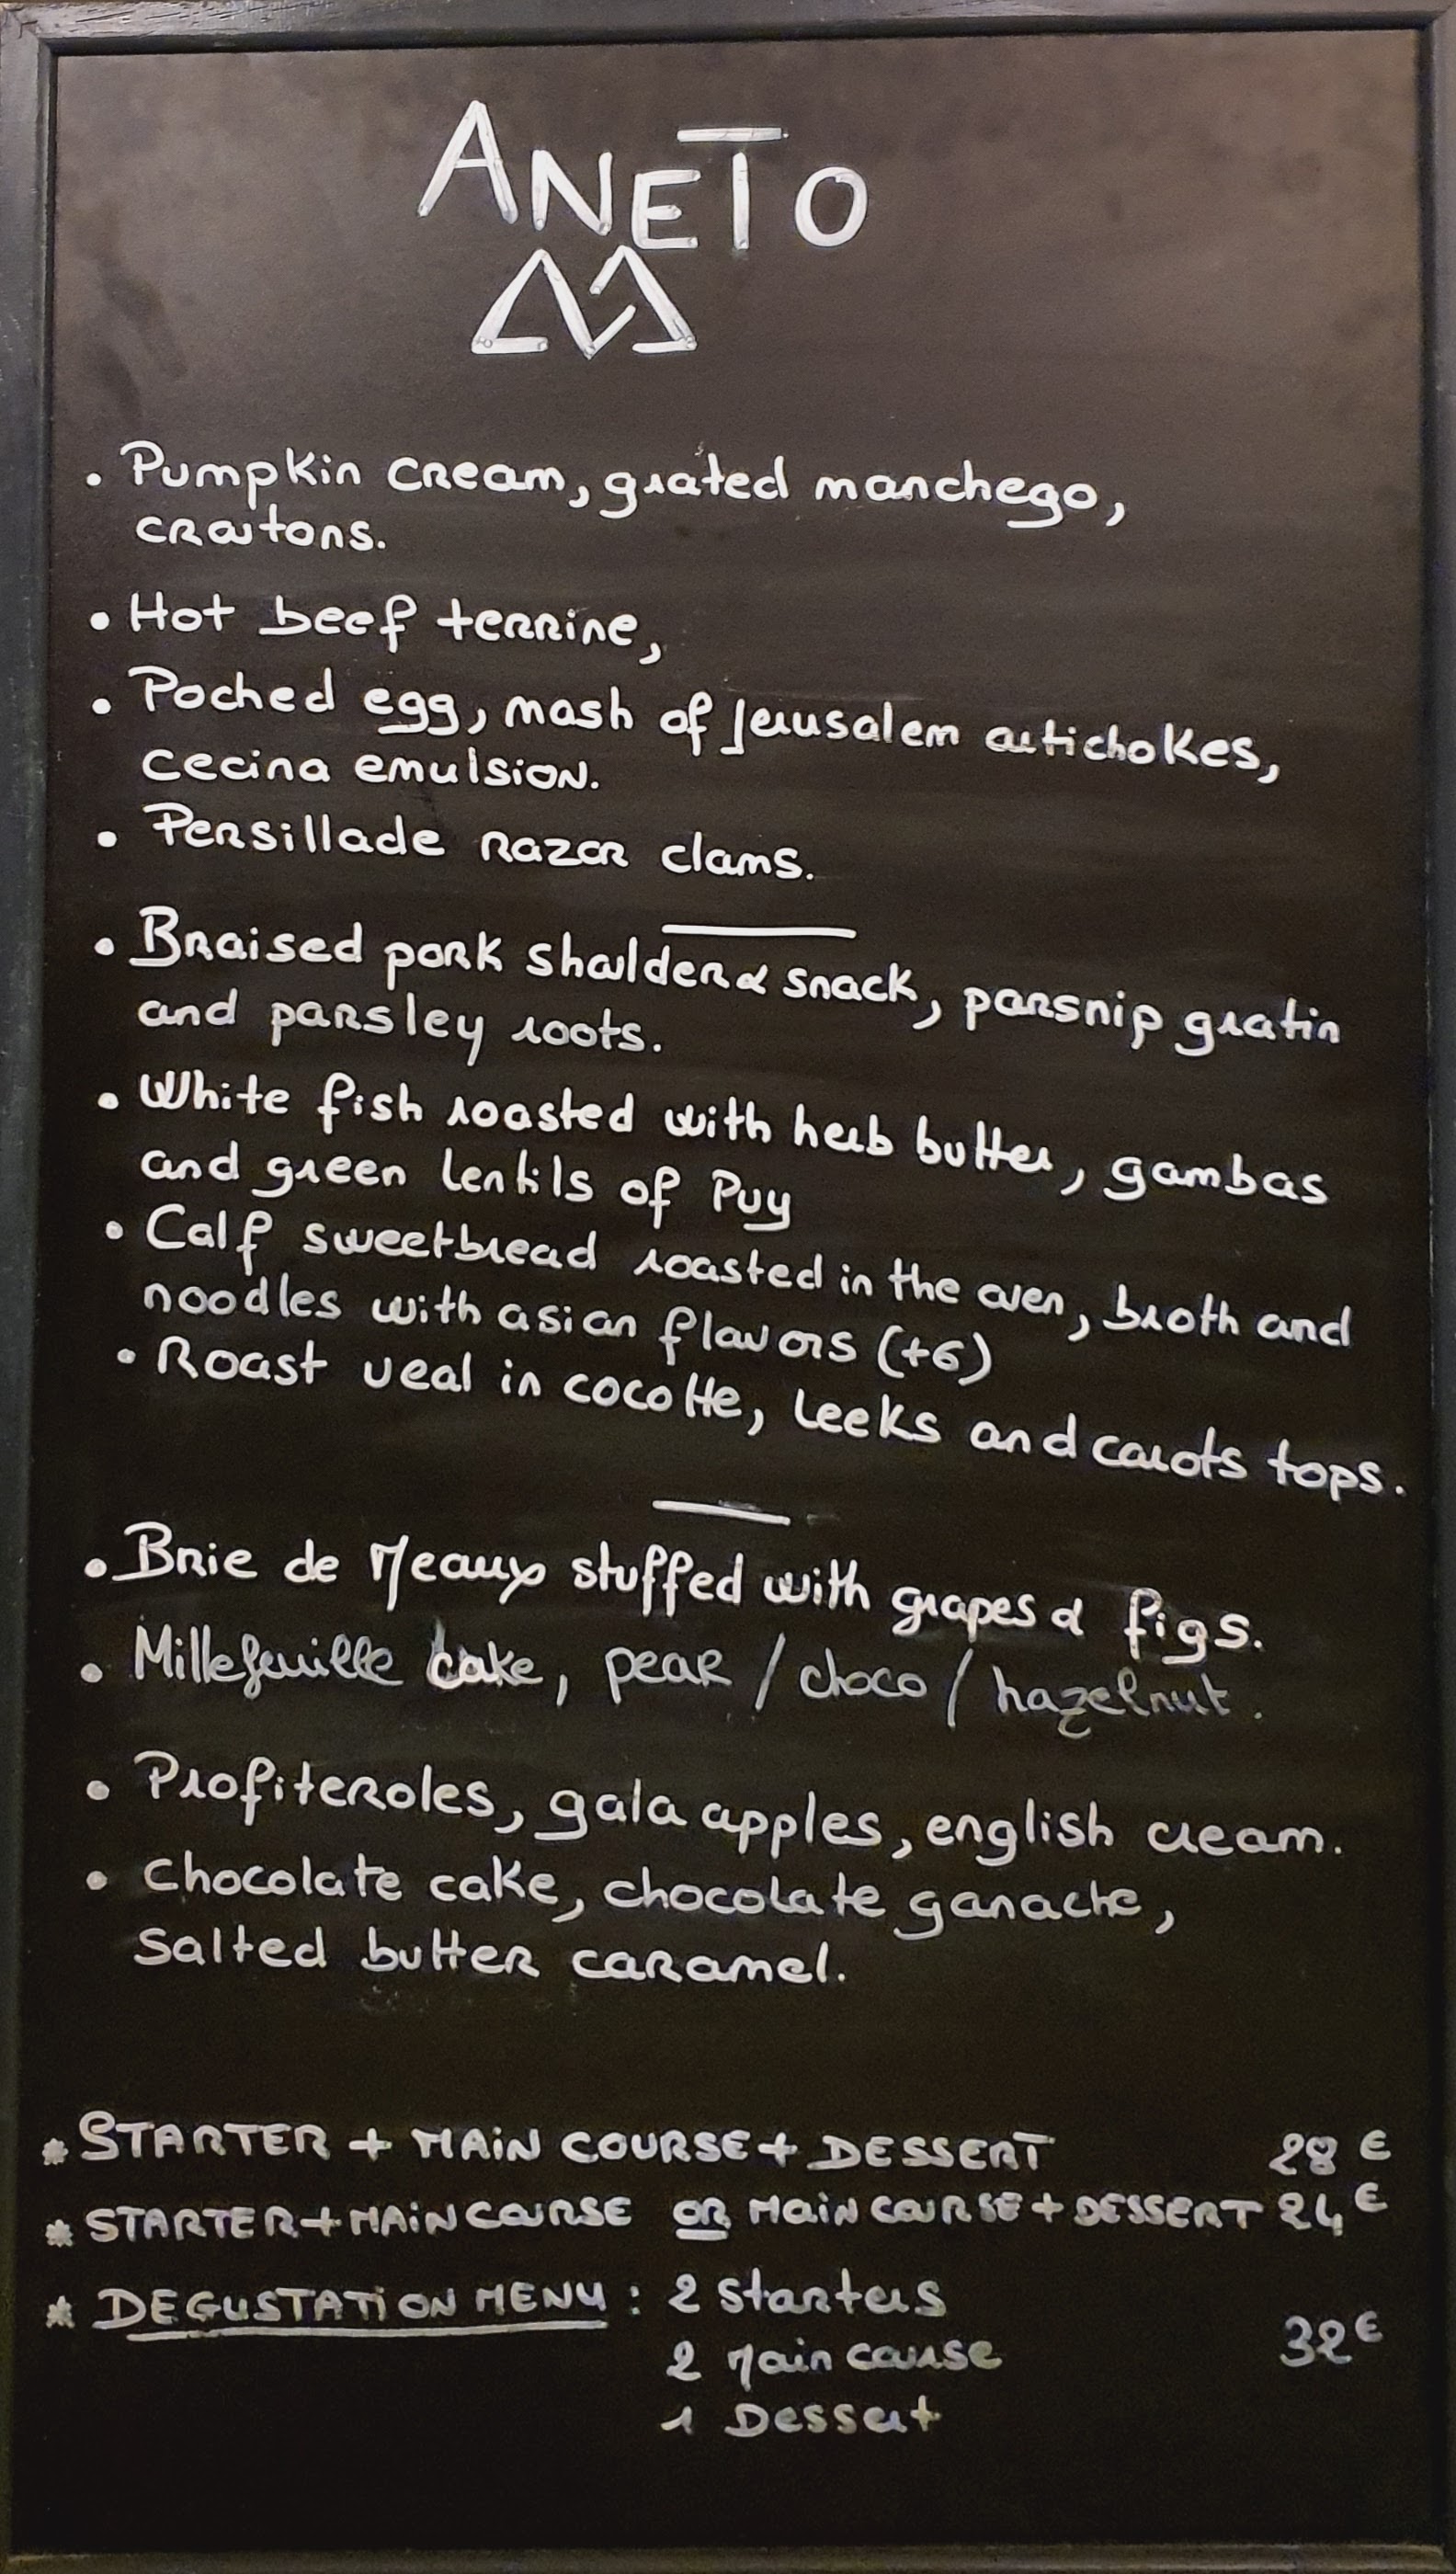 ANETO
• Pumpkin cream, grated manchego,
croutons.
• Hot beef terrine,
• Poched egg, mash of Jerusalem artichokes,
cecina emulsion.
• Persillade razor clams.
• Braised pork shoulder & snack, parsnip gratin
and parsley roots.
• White fish roasted with herb butter, gambas
and green lentils of Puy
• Calf sweetbread roasted in the oven, broth and
noodles with asian flavors (+6)
• Roast veal in cocotte, leeks and carots tops.
• Brie de Meaux stuffed with grapes & figs.
• Millefeuille cake, pear / choco / hazelnut.
• Profiteroles, gala apples, english cream.
• Chocolate cake, chocolate ganache,
salted butter caramel.
* STARTER + MAIN COURSE + DESSERT 28 €
* STARTER + MAIN COURSE OR MAIN COURSE + DESSERT 24 €
* DEGUSTATION MENU : 2 starters
2 Main course 32 €
1 Dessert